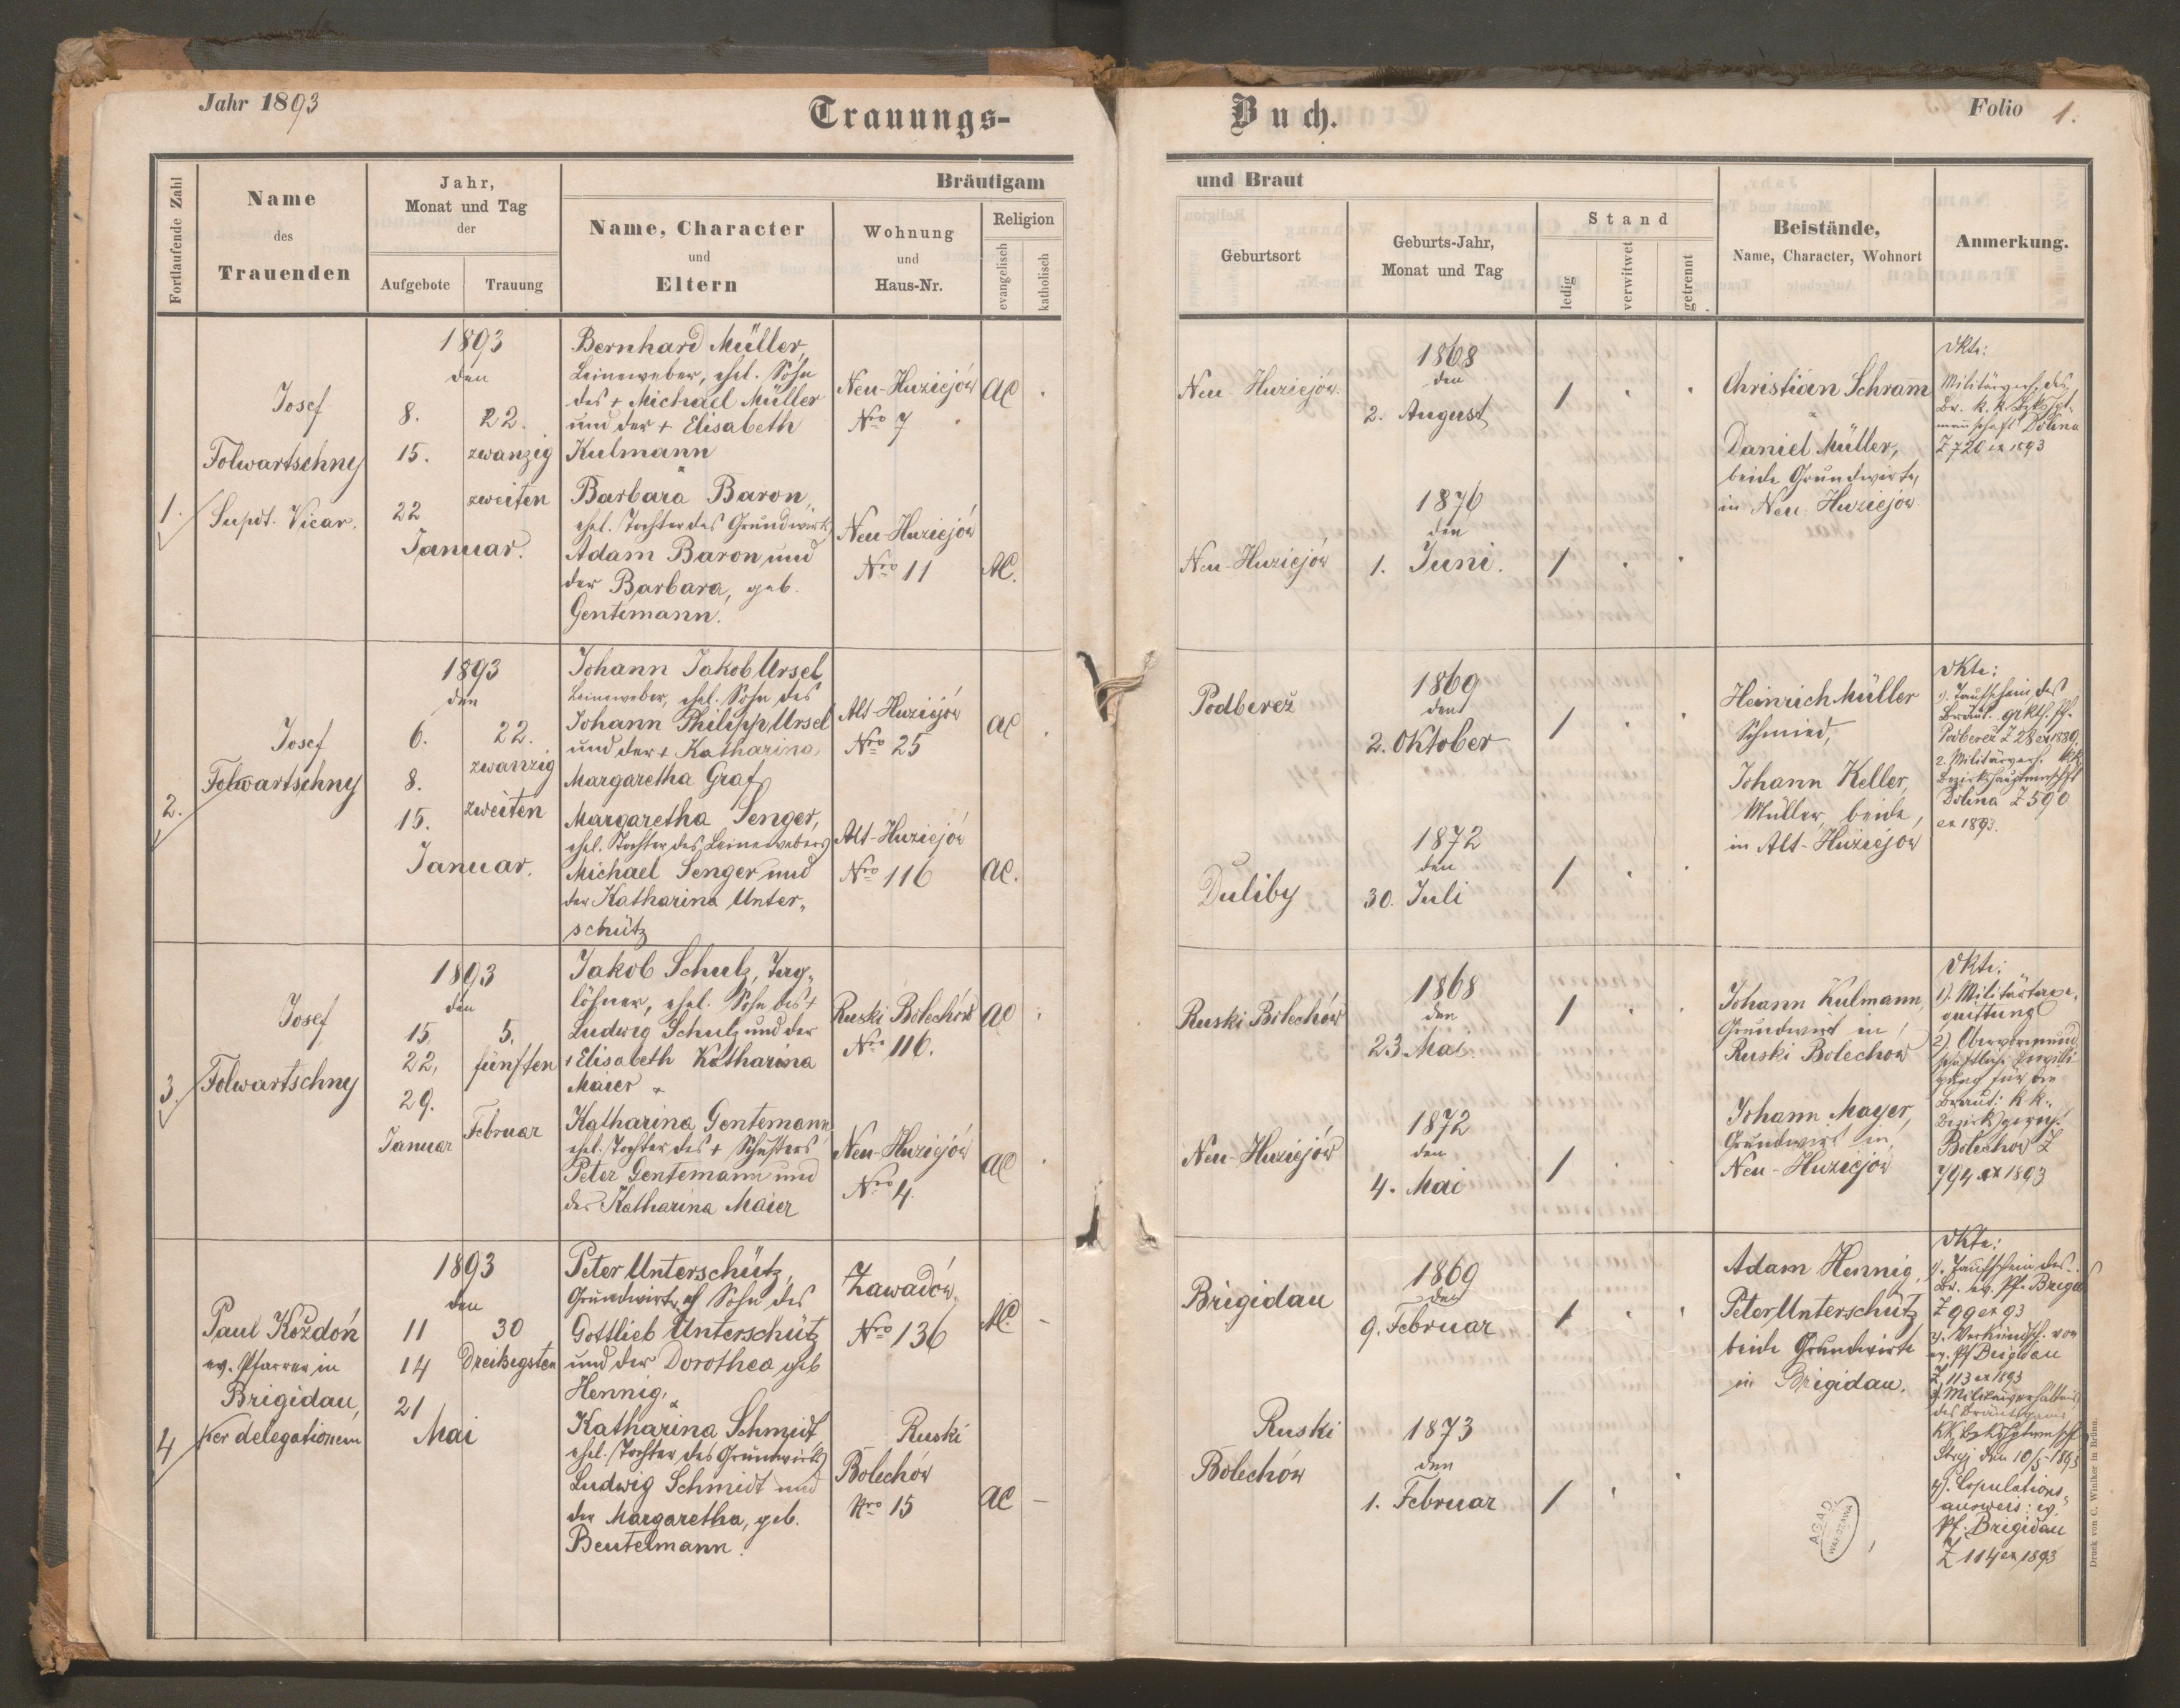 Jahr 1893
Trauungs-
Buch.
Folio 1.
Fortlaufende Zahl
Name
des
Trauenden
Jahr,
Monat und Tag
der
Aufgebote
Trauung
Bräutigam
Name, Character
und
Eltern
Wohnung
und
Haus-Nr.
Religion
evangelisch
katholisch
und Braut
Geburtsort
Geburts-Jahr,
Monat und Tag
Stand
ledig
verwitwet
getrennt
Beistände,
Name, Character, Wohnort
Anmerkung.
1.
Josef
Folwartschny
Supdt. Vicar.
1893
den
8. 22.
15. zwanzig
zweiten
22
Januar.
Bernhard Müller,
Leineweber, ehel. Sohn
des + Michael Müller
und der + Elisabeth
Kulmann
&
Barbara Baron,
ehel. Tochter des Grundwirts
Adam Baron und
der Barbara, geb.
Gentemann.
Neu-Huziejów
Nro 7
AC
Neu-Huziejów
Nro 11
AC.
Neu-Huziejów
1868
den
2. August
1
Neu-Huziejów
1876
den
1. Juni.
1
Christian Schram̄
&
Daniel Müller,
beide Grundwirte,
in Neu Huziejow
Dkte:
Militärverh. des
Br. k. k. Bzkshpt-
mañschaft Dolina
Z 720 ex 1893
2.
Josef
Folwartschny
1893
den
6. 22.
8. zwanzig
15. zweiten
Januar.
Johann Jakob Ursel
Leineweber, ehel. Sohn des
Johann Philipp Ursel
und der + Katharina
Margaretha Graf
Margaretha Senger,
ehel. Tochter des Leinewebers
Michael Senger und
der Katharina Unter-
schütz
Alt-Huziejów
Nro 25
AC
Alt-Huziejów
Nro 116
AC.
Podbereż
1869
den
2. Oktober
1
Duliby
1872
den
30. Juli
1
Heinrich Müller
Schmied,
Johann Keller,
Müller, beide,
in Alt-Huziejow
Dkte:
1). Taufschein des
Bräut. grkth. Pf.
Podbereż Z 28 ex 1880
2. Militärverh. kk
Bezirkshauptmannschft
Dolina Z 590
ex 1893.
3.
Josef
Folwartschny
1893
den
15, 5.
22, fünften
29.
Januar Februar
Jakob Schulz, Tag-
löhner, ehel. Sohn des +
Ludwig Schulz und der
+ Elisabeth Katharina
Maier &
Katharina Gentemann
ehel. Tochter des + Schusters
Peter Gentemann und
der Katharina Maier
Ruski Bolechów
Nro 116.
AC
Neu-Huziejów
Nro 4.
AC
Ruski Bolechów
1868
den
23 Mai.
1
Neu-Huziejów
1872
den
4. Mai
1
Johann Kulmann,
Grundwirt in
Ruski Bolechow
Johann Mayer,
Grundwirt in
Neu-Huziejów
Dkte:
1). Militärtaxe,
quittung
2) Obervormund
schaftliche
für die
Braut: k k.
Bezirksgericht
Bolechow Z
794 ex 1893
4
Paul Kożdoń
ev. Pfarrer in
Brigidau,
per delegationem
1893
den
11 30
14 Dreißigsten
21
Mai
Peter Unterschütz,
Grundwirt, eh Sohn des
Gottlieb Unterschütz
und der Dorothea geb
Hennig.
&
Katharina Schmidt
ehel. Tochter des Grundwirts
Ludwig Schmidt und
der Margaretha, geb.
Beutelmann.
Zawadów.
Nro 136
AC.
Ruski
Bolechów
Nro 15
AC
Brigidau
1869
den
9. Februar
1
Ruski
Bolechów
1873
den
1. Februar
1
Adam Hennig,
Peter Unterschütz
beide Grundwirte
in Brigidau.
Dkte:
1). Taufschein des
Br. ev. Pf. Brigid
Z 99 ex 93
2). Verkündsch. von
ev. Pf Brigidau
Z 113 ex 1893
3) Militärverhältnis
des Bräutigams
KK Bzkshptmschft
Stryj den 10/5 1893
4). Copulations-
ausweis: ev
Pf. Brigidau
Z 114 ex 1893
AGAD
WARSZAWA
Druck von C. Winiker in Brünn.